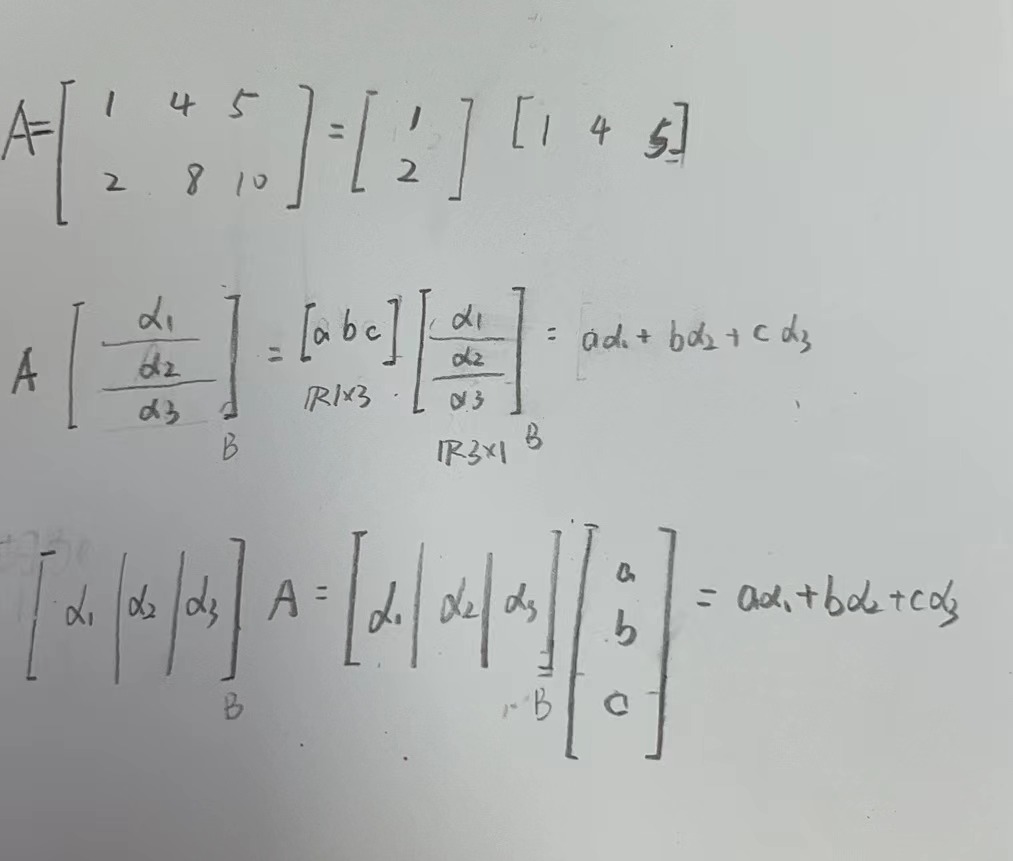 A = [ 1 4 5 ; 2 8 10 ] = [ 1 ; 2 ] [ 1 4 5 ]
A [ α1 ; α2 ; α3 ] B = [a b c] ℝ1×3 · [ α1 ; α2 ; α3 ] B ℝ3×1 = aα1 + bα2 + cα3
[ α1 | α2 | α3 ] B A = [ α1 | α2 | α3 ] B [ a ; b ; c ] = aα1 + bα2 + cα3